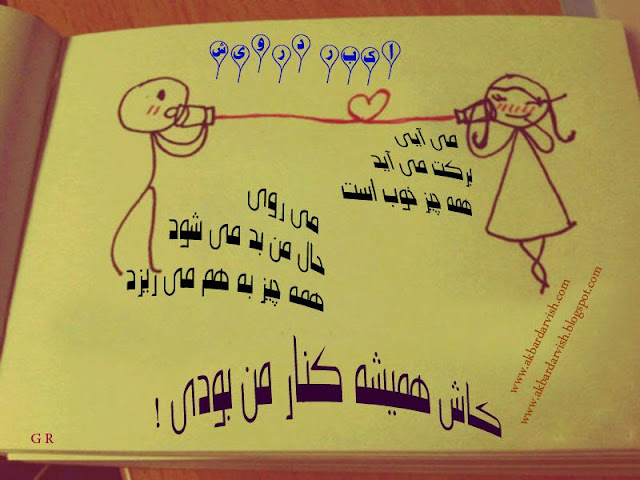 اکبر درویش
می آیی
برکت می آید
همه چیز خوب است
می روی
حال من بد می شود
همه چیز به هم می ریزد
کاش همیشه کنار من بودی !
www.akbardarvish.com
www.akbardarvish.blogspot.com
G R